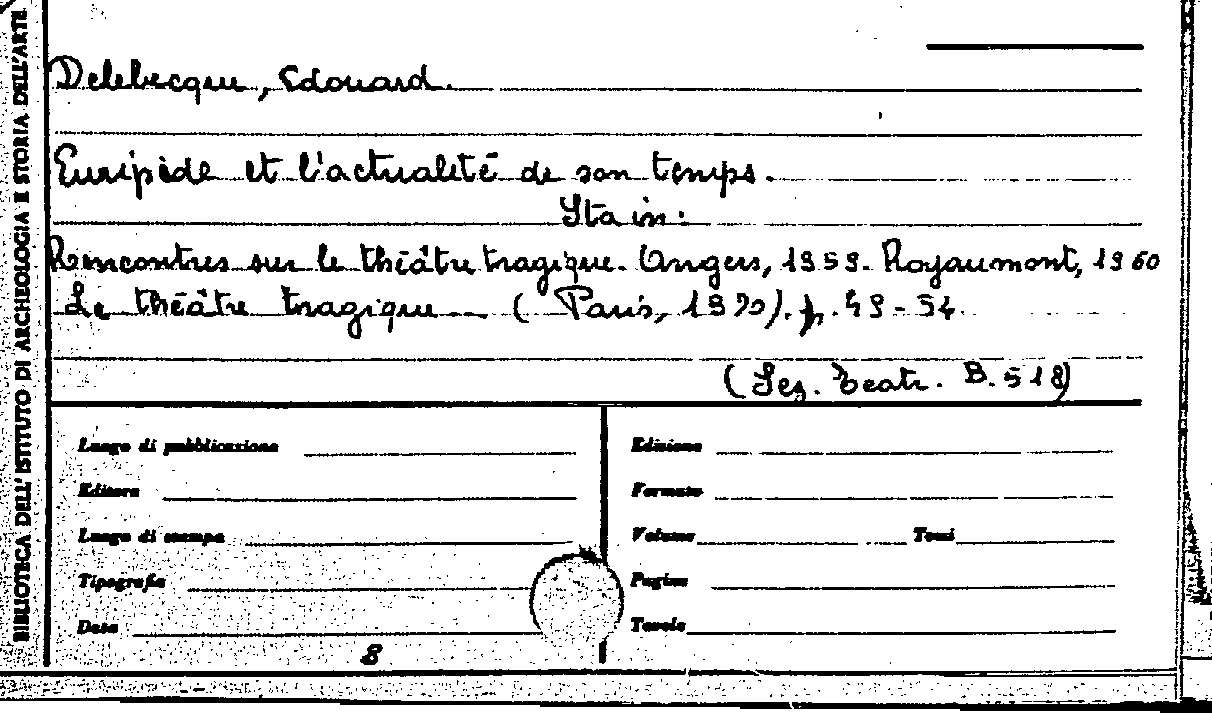 BIBLIOTECA DELL'ISTITUTO DI ARCHEOLOGIA E STORIA DELL'ARTE
Delebecque, Edouard.
Euripide et l'actualité de son temps.
Sta in:
Rencontres sur le théâtre tragique. Angers, 1959. Royaumont, 1960
Le théâtre tragique (Paris, 1970). p. 49-54.
(Sez. teatr. B. 518)
Luogo di pubblicazione
Edizione
Editore
Formato
Luogo di stampa
Volume Tomi
Tipografia
Pagine
Data
Tavole
8